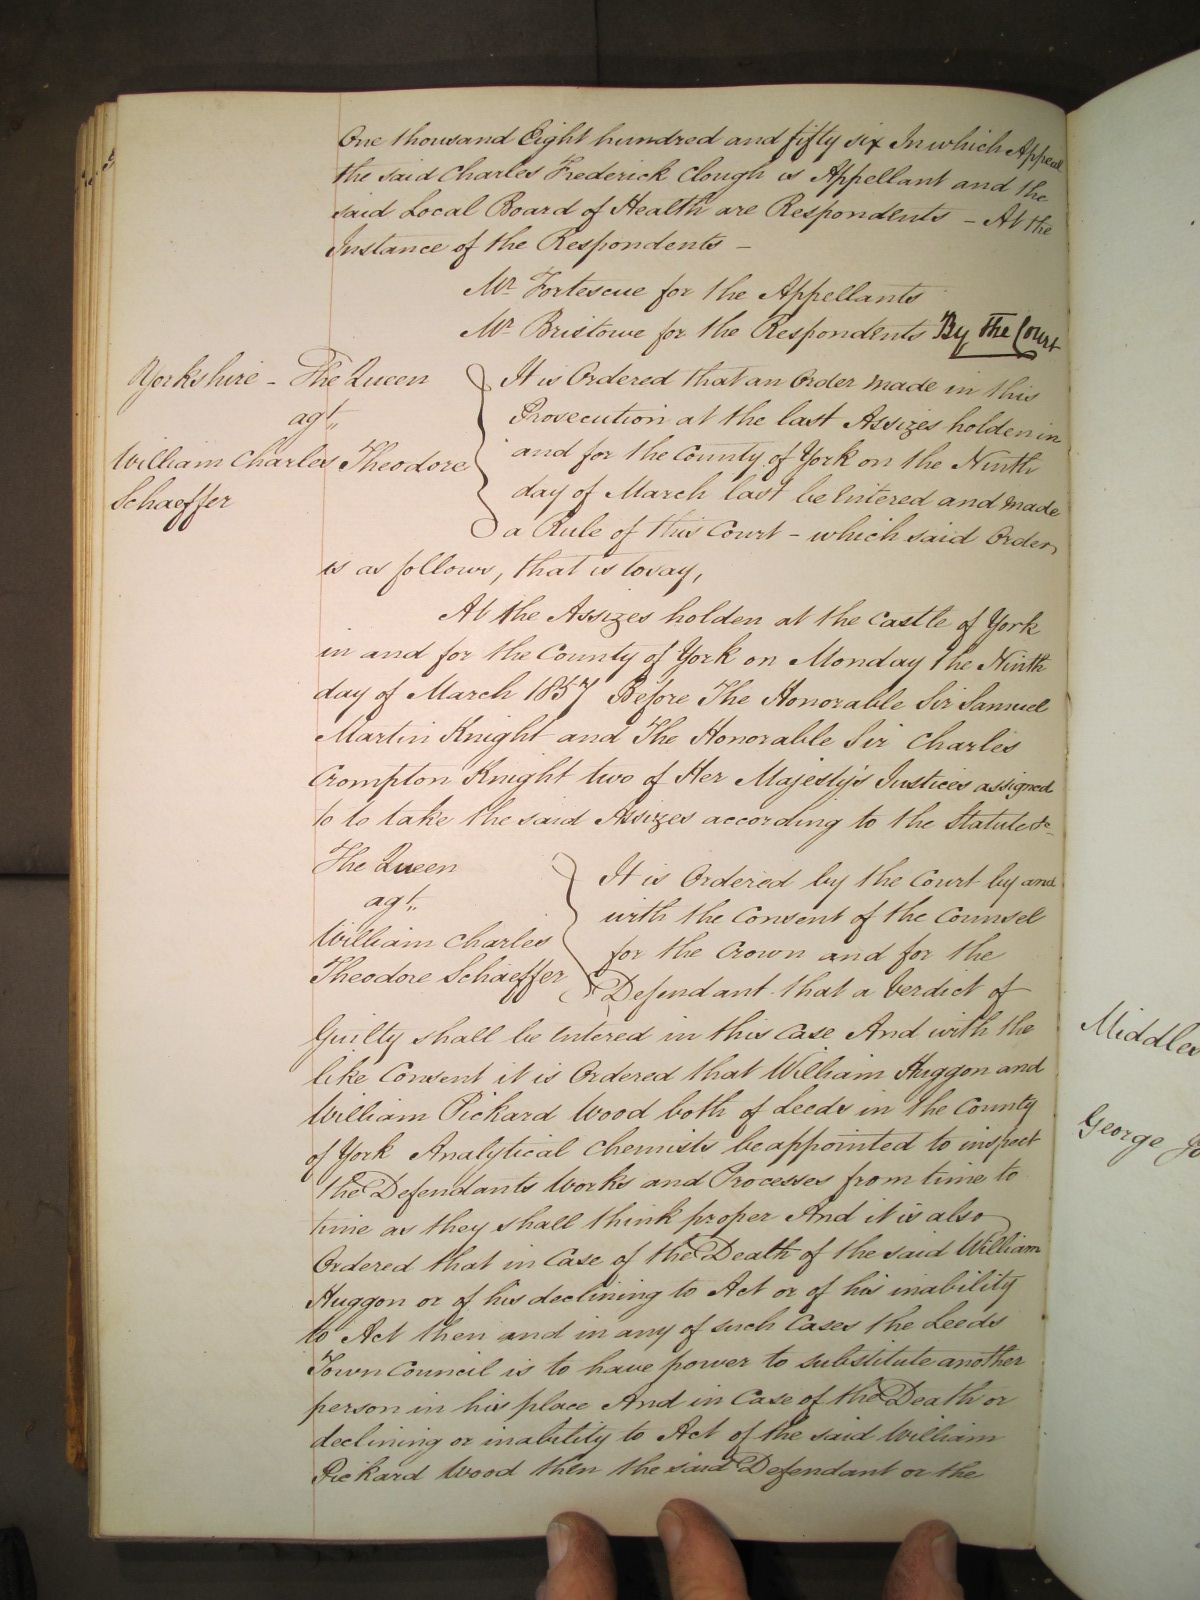 One thousand Eight hundred and fifty six In which Appeal
the said Charles Frederick Clough is Appellant and the
said Local Board of Health are Respondents – At the
Instance of the Respondents –
Mr. Fortescue for the Appellants
Mr. Bristowe for the Respondents By the Court
Yorkshire – The Queen
agt.
William Charles Theodore
Schaeffer
It is Ordered that an Order made in this
Prosecution at the last Assizes holden in
and for the County of York on the Ninth
day of March last be Entered and made
a Rule of this Court – which said Order
is as follows, that is to say,
At the Assizes holden at the Castle of York
in and for the County of York on Monday the Ninth
day of March 1857 Before The Honorable Sir Samuel
Martin Knight and The Honorable Sir Charles
Crompton Knight two of Her Majesty's Justices assigned
to to take the said Assizes according to the Statute &c
The Queen
agt.
William Charles
Theodore Schaeffer
It is Ordered by the Court by and
with the Consent of the Counsel
for the Crown and for the
Defendant that a Verdict of
Guilty shall be entered in this Case And with the
like Consent it is Ordered that William Huggon and
William Pickard Wood both of Leeds in the County
of York Analytical Chemists be appointed to inspect
the Defendants Works and Processes from time to
time as they shall think proper And it is also
Ordered that in Case of the Death of the said William
Huggon or of his declining to Act or of his inability
to Act then and in any of such Cases the Leeds
Town Council is to have power to substitute another
person in his place And in Case of the Death or
declining or inability to Act of the said William
Pickard Wood then the said Defendant or the
Middles
George